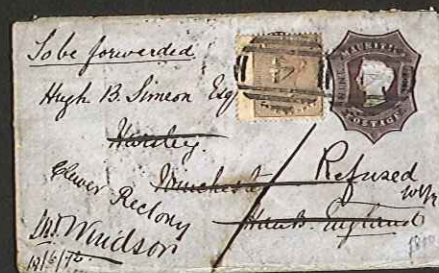 To be forwarded.
Hugh B. Simeon Esq
Hursley.
Winchester
Hants. England
Clewer Rectory
Nr. Windsor
Refused
MAURITIUS
POSTAGE